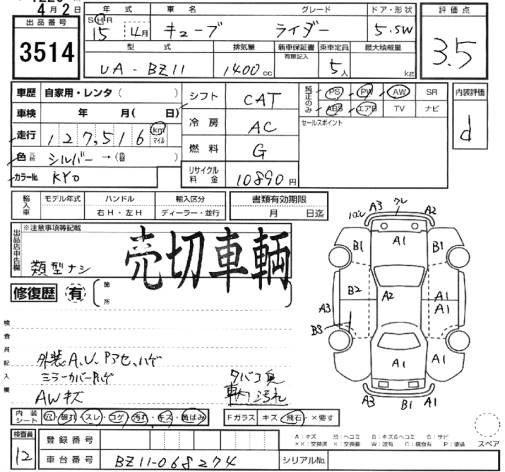 4月2日
出品番号 3514
年式 車名 グレード ドア・形状 評価点
SHR 15年4月 キューブ ライダー 5.SW 3.5
型式 排気量 新車保証書 有無記入 乗車定員 最大積載量
UA-BZ11 1400cc 5人 kg
車歴 自家用・レンタ( ) シフト CAT 純正のみ PS PW AW SR 内装評価
車検 年 月( 日) 冷房 AC ABS エアB TV ナビ d
走行 127,516 km マイル セールスポイント
色 シルバー→( ) 燃料 G
カラーNo. KY0 リサイクル料金 10890円
輸入車 モデル年式 ハンドル 輸入区分 書類有効期限
右H・左H ディーラー・並行 月 日迄
出品店申告欄 ※注意事項等記載
類型ナシ
売切車輌
修復歴 有 箇所
検査員記入欄
外装A,U,Pアセ,ハゲ
ミラーカバーハゲ タバコ臭
AWキズ
内装シート 穴・破れ・スレ・コゲ・汚れ・キズ・黄ばみ Fガラス キズ・飛石・×要す
検査員 12
登録番号
車台番号 BZ11-068274 シリアルNo.
A3 A2 A1 B1 B1 A1 A3 B2 A2 A3 A1 B3 A1 A3 B1 A1 A2
A:キズ
スペア